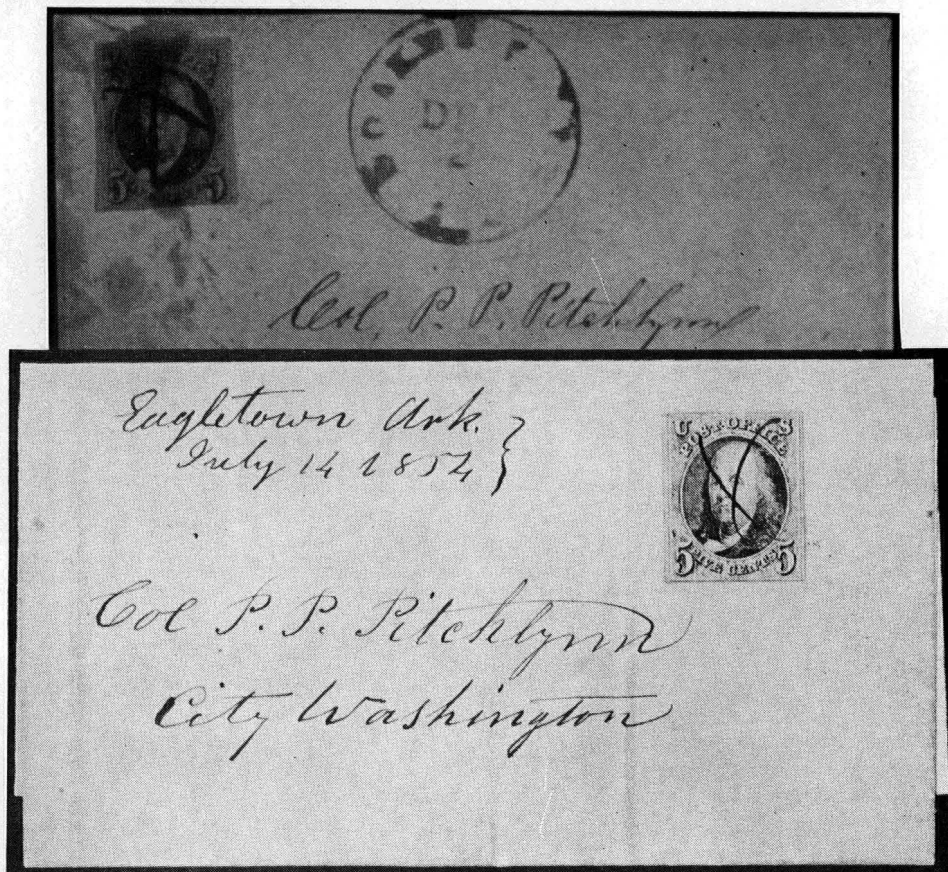 DE
5 5
Col. P. P. Pitchlynn
Eagletown Ark.
July 14 1854
U S
POST OFFICE
5 FIVE CENTS 5
Col P. P. Pitchlynn
City Washington